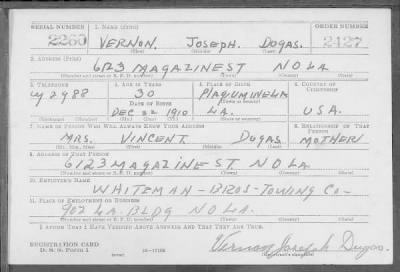 SERIAL NUMBER 1. NAME (Print) ORDER NUMBER
2260 VERNON. JOSEPH. DUGAS. 2127
(First) (Middle) (Last)
2. ADDRESS (Print)
6123 MAGAZINE ST NOLA
(Number and street or R. F. D. number) (Town) (County) (State)
3. TELEPHONE 4. AGE IN YEARS 5. PLACE OF BIRTH 6. COUNTRY OF CITIZENSHIP
30
DATE OF BIRTH (Town or county)
2988 DEC 22 1910 LA. U.S.A.
(Exchange) (No.) (Mo.) (Day) (Yr.) (State or country)
7. NAME OF PERSON WHO WILL ALWAYS KNOW YOUR ADDRESS 8. RELATIONSHIP OF THAT PERSON
MRS. VINCENT DUGAS MOTHER
(Mr., Mrs., Miss) (First) (Middle) (Last)
9. ADDRESS OF THAT PERSON
6123 MAGAZINE ST NOLA
(Number and street or R. F. D. number) (Town) (County) (State)
10. EMPLOYER'S NAME
WHITEMAN-BROS-TOWING CO-
11. PLACE OF EMPLOYMENT OR BUSINESS
902 LA. BLDG NOLA.
(Number and street or R. F. D. number) (Town) (County) (State)
I AFFIRM THAT I HAVE VERIFIED ABOVE ANSWERS AND THAT THEY ARE TRUE.
REGISTRATION CARD
D. S. S. Form 1 (over) Vernon Joseph Dugas.